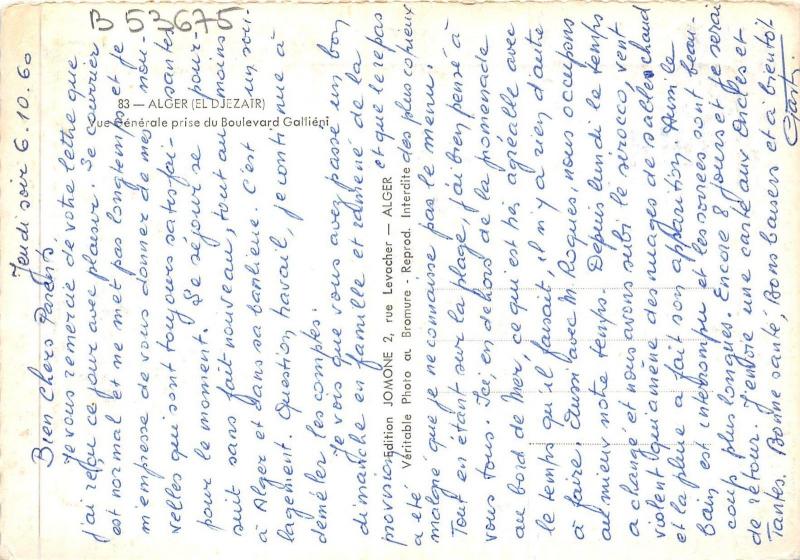 B 53675
83 — ALGER (EL DJEZAÏR)
Vue Générale prise du Boulevard Galliéni
Edition JOMONE 2, rue Levacher — ALGER
Véritable Photo au Bromure - Reprod. Interdite
Jeudi soir 6.10.60
Bien chers Parents
Je vous remercie de votre lettre que
j'ai reçu ce jour avec plaisir. Le courrier
est normal et ne met pas longtemps et je
m'empresse de vous donner de mes nou-
velles qui sont toujours satisfai- santé
pour le moment. Le séjour se pour-
suit sans fait nouveau, tout au moins
à Alger et dans sa banlieue. C'est un soula-
lagement. Question travail, je continue à
demêler les comptes.
Je vois que vous avez passé un bon
dimanche en famille et ramené de la
provision et que le repas
a été des plus copieux
malgré que je ne connaisse pas le menu.
Tout en étant sur la plage, j'ai bien pensé à
vous tous. Ici, en dehors de la promenade
au bord de mer, ce qui est très agréable avec
le temps qu'il faisait, il n'y a rien d'autre
à faire. Aussi avec M. Roques, nous occupons
au mieux notre temps. Depuis lundi le temps
a changé et nous avons subi le sirocco, vent
violent qui amène des nuages de sables chaud
et la pluie a fait son apparition. Aussi le
bain est interrompu et les soirées sont beau-
coup plus longues. Encore 8 jours et je serai
de retour. J'envoie une carte aux Oncles et
Tantes. Bonne santé, Bons baisers et à bientôt